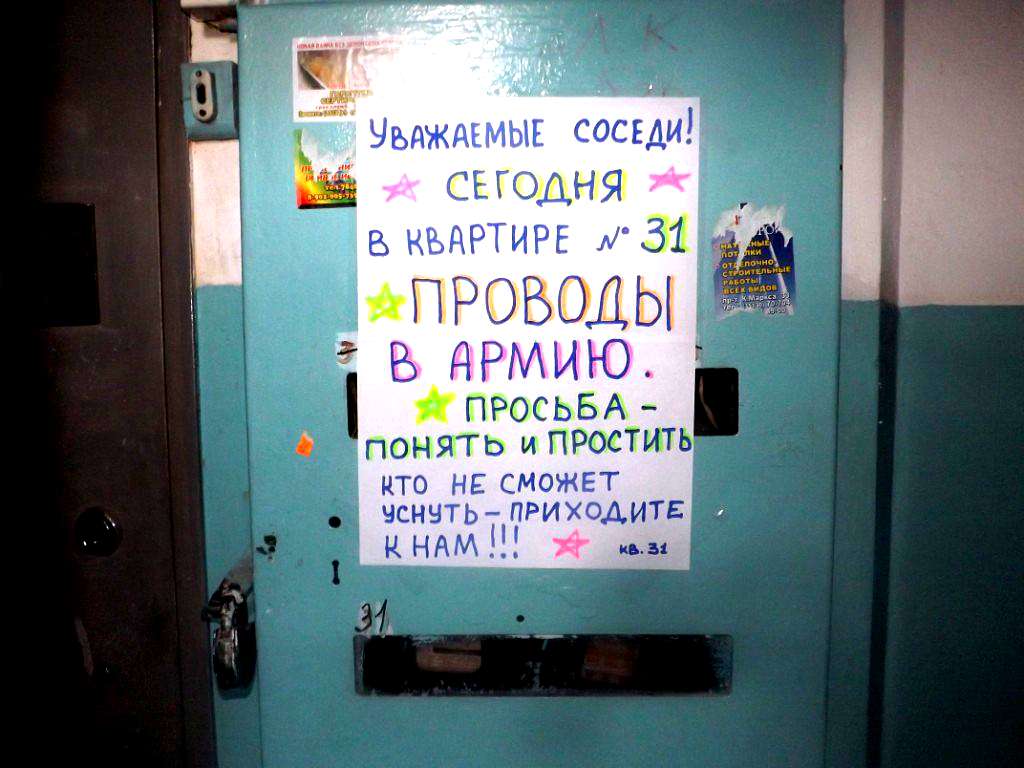 УВАЖАЕМЫЕ СОСЕДИ!
СЕГОДНЯ
В КВАРТИРЕ № 31
ПРОВОДЫ
В АРМИЮ.
ПРОСЬБА –
ПОНЯТЬ И ПРОСТИТЬ
КТО НЕ СМОЖЕТ
УСНУТЬ – ПРИХОДИТЕ
К НАМ!!!
КВ. 31
31
ОТДЕЛОЧНО
СТРОИТЕЛЬНЫЕ
РАБОТЫ
ВСЕХ ВИДОВ
пр-т К.Маркса